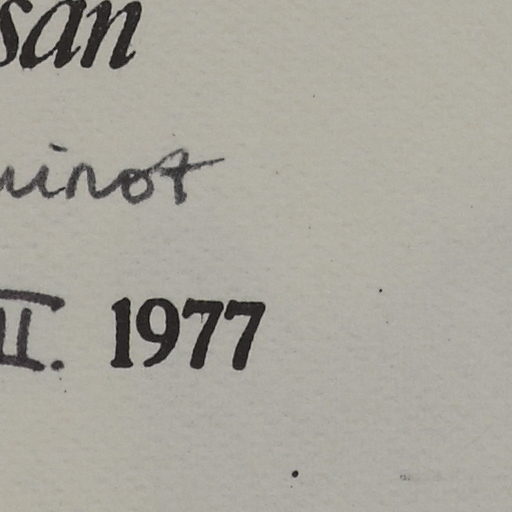 san
uinot
II. 1977